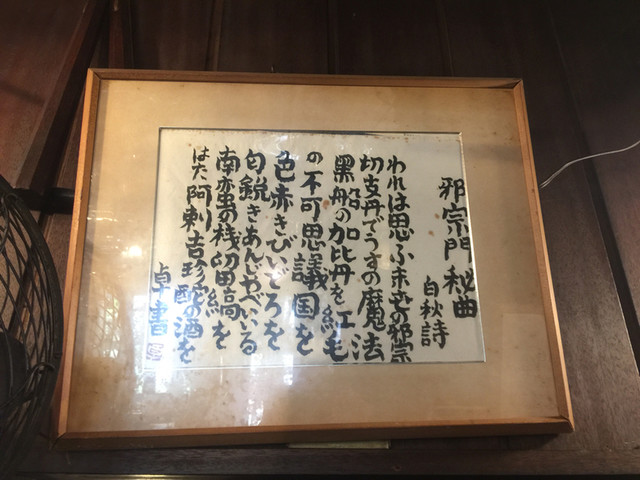 邪宗門秘曲
白秋詩
われは思ふ末世の邪宗
切支丹でうすの魔法
黒船の加比丹を紅毛
の不可思議国を
色赤きびいどろを
匂鋭きあんじやべいいる
南蛮の桟留縞を
はた阿剌吉珍酡の酒を
卓書